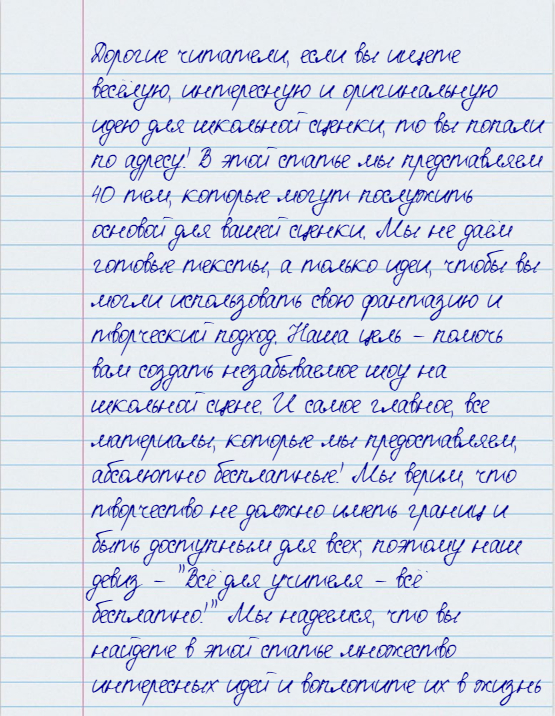 Дорогие читатели, если вы ищете
весёлую, интересную и оригинальную
идею для школьной сценки, то вы попали
по адресу! В этой статье мы представляем
40 тем, которые могут послужить
основой для вашей сценки. Мы не даём
готовые тексты, а только идеи, чтобы вы
могли использовать свою фантазию и
творческий подход. Наша цель – помочь
вам создать незабываемое шоу на
школьной сцене. И самое главное, все
материалы, которые мы предоставляем,
абсолютно бесплатные! Мы верим, что
творчество не должно иметь границ и
быть доступным для всех, поэтому наш
девиз – "Всё для учителя – всё
бесплатно!" Мы надеемся, что вы
найдете в этой статье множество
интересных идей и воплотите их в жизнь